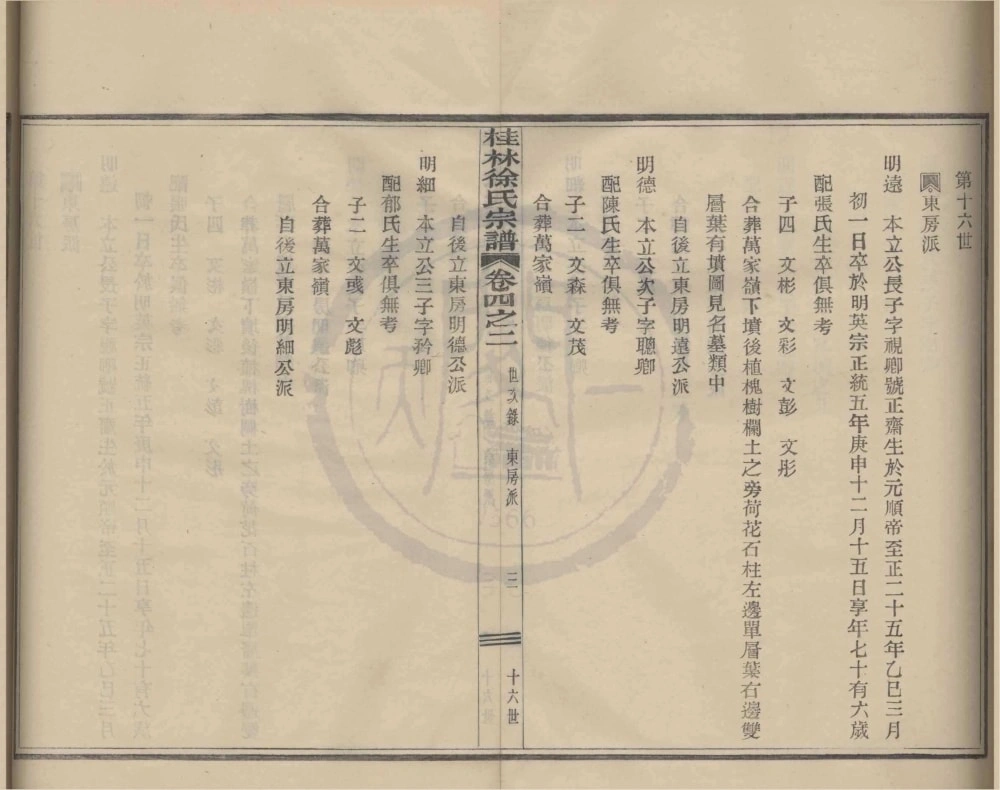 第十六世
東房派
明遠　本立公長子字視卿號正齋生於元順帝至正二十五年乙巳三月
初一日卒於明英宗正統五年庚申十二月十五日享年七十有六歲
配張氏生卒俱無考
子四　文彬　文彩　文彭　文彤
合葬萬家嶺下墳後植槐樹欄土之旁荷花石柱左邊單層葉右邊雙
層葉有墳圖見名墓類中
自後立東房明遠公派
明德　本立公次子字聰卿
配陳氏生卒俱無考
子二　文森　文茂
合葬萬家嶺
桂林徐氏宗譜　卷四之二　世次錄　東房派　三　十六世
自後立東房明德公派
明細　本立公三子字矜卿
配郁氏生卒俱無考
子二　文彧　文彪
合葬萬家嶺
自後立東房明細公派